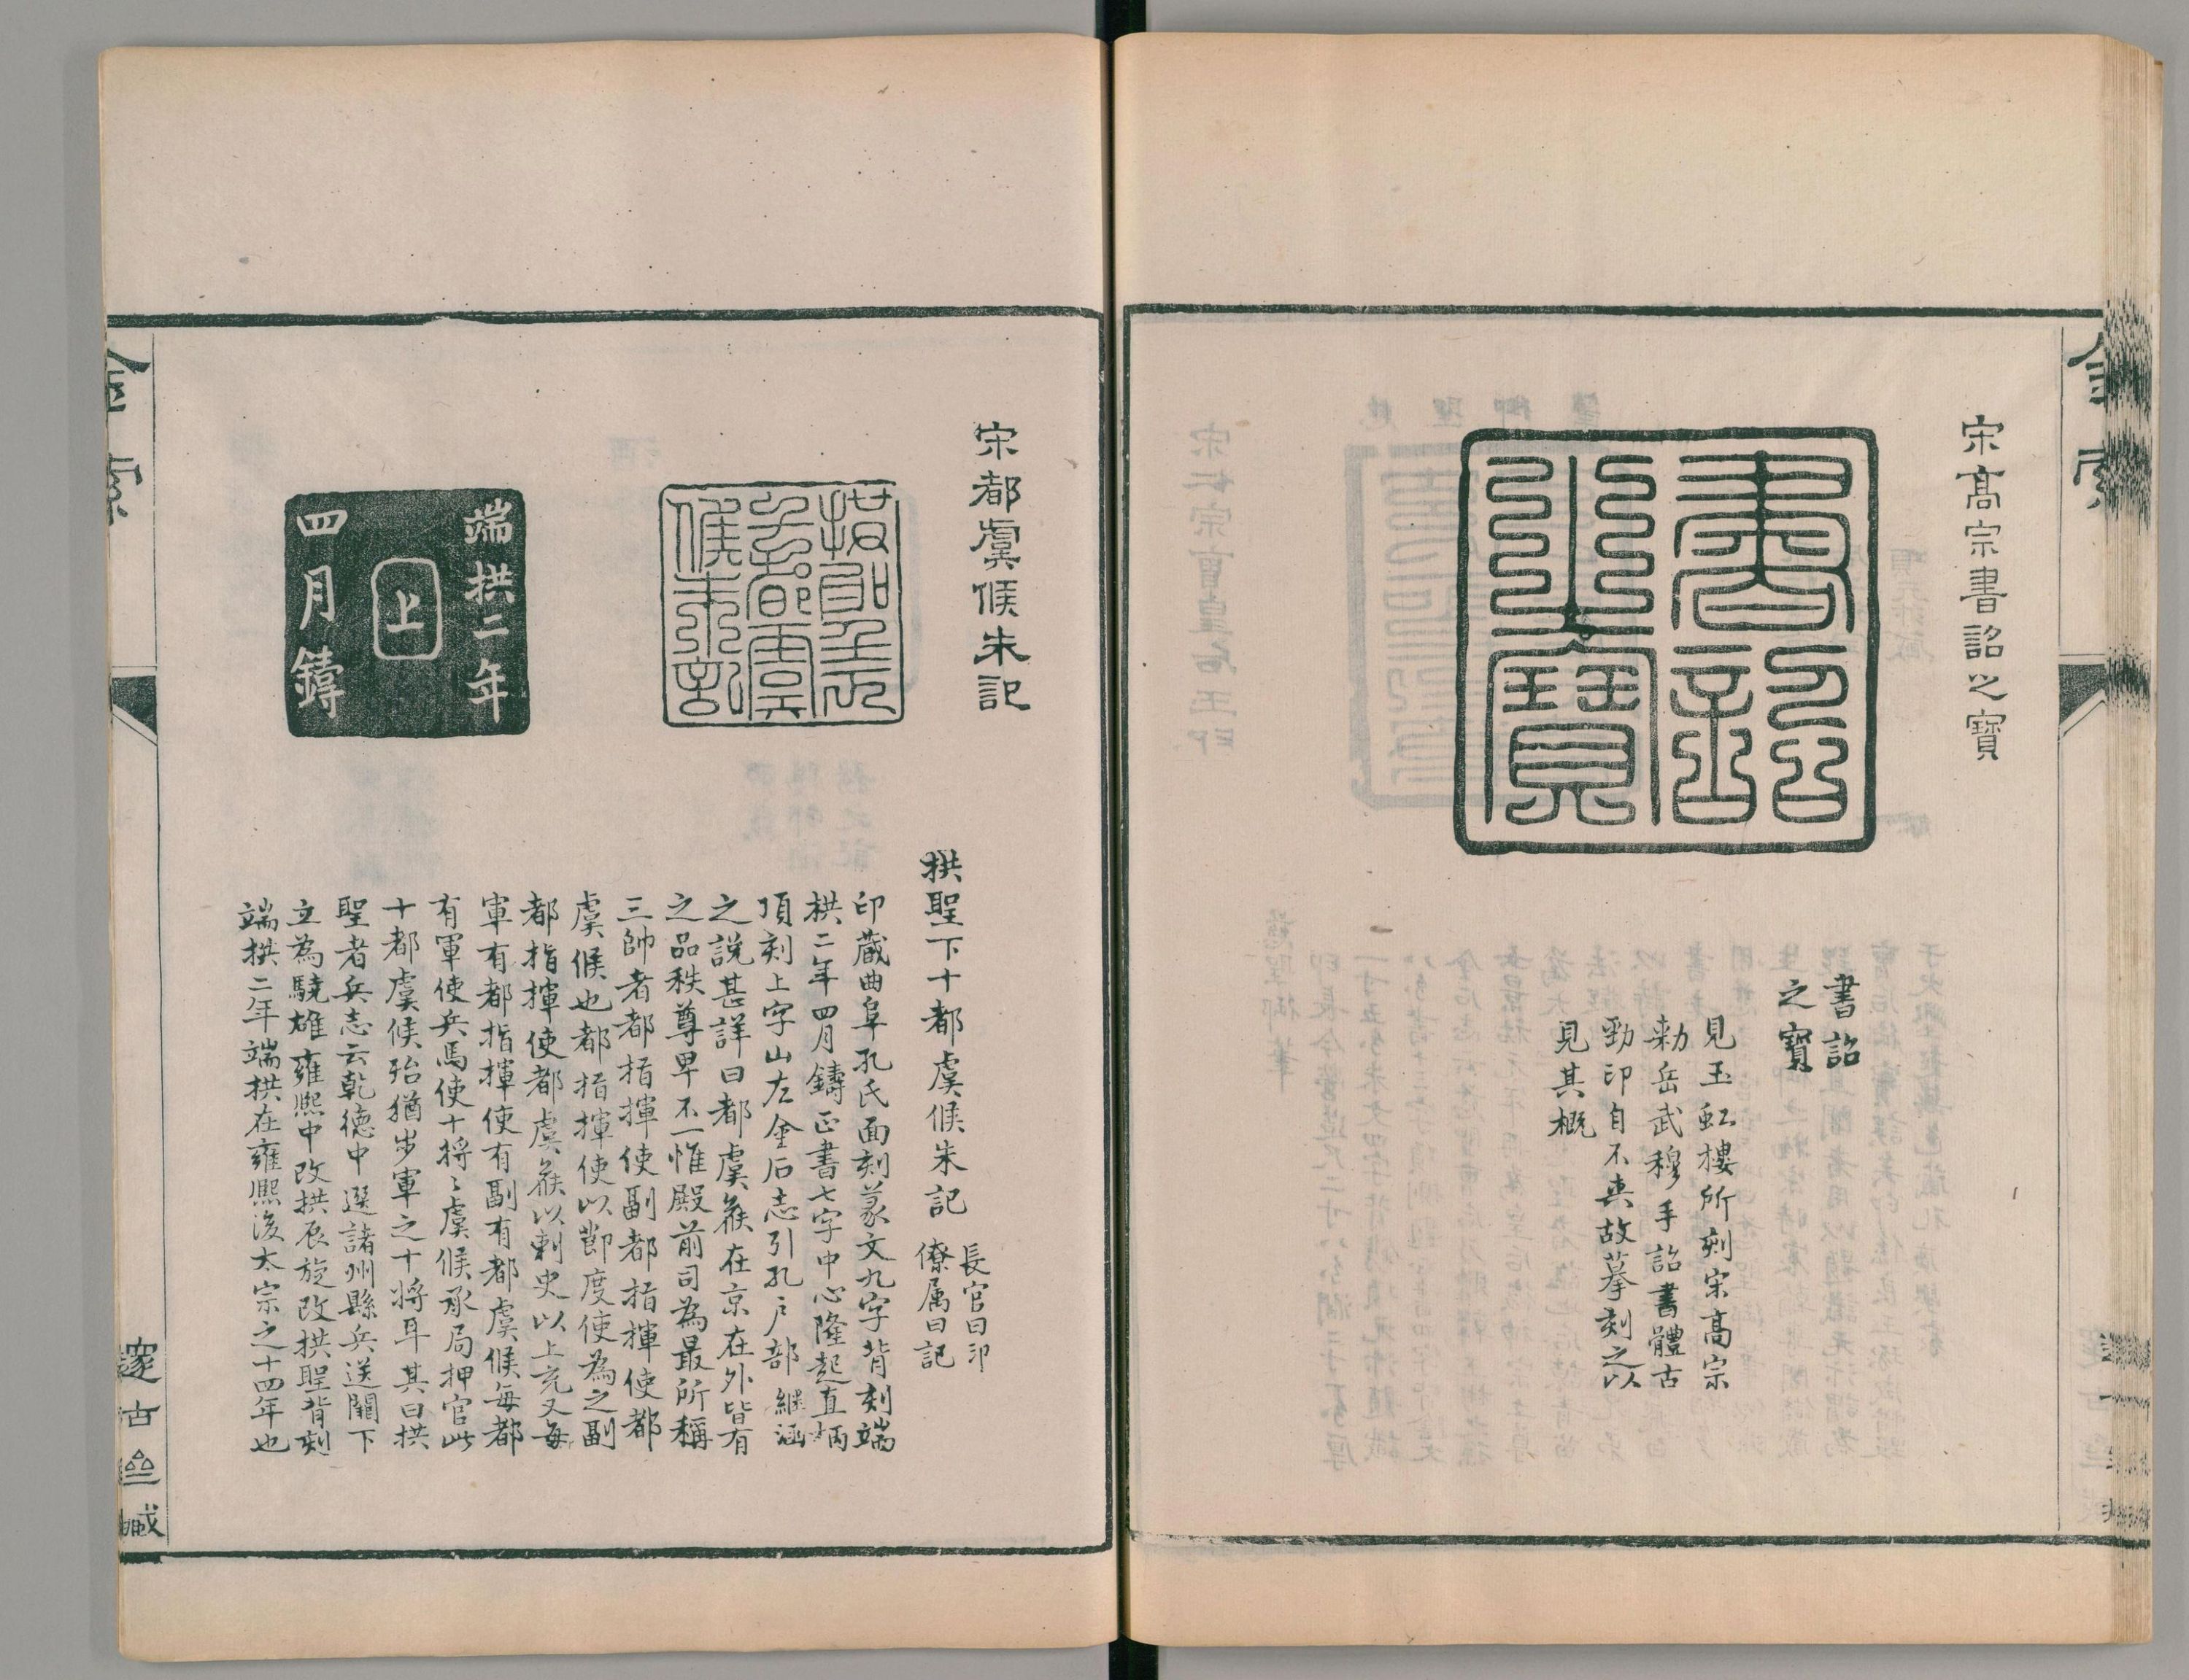 宋高宗書詔之寶
書詔之寶
書詔
之寶
見玉虹樓所刻宋高宗
勑岳武穆手詔書體古
勁印自不真故摹刻之以
見其概
金索
宋都虞候朱記
拱聖下十都虞候朱記
端拱二年
上
四月鑄
拱聖下十都虞候朱記
長官曰印
僚属曰記
印藏曲阜孔氏面刻篆文九字背刻端
拱二年四月鑄正書七字中心隆起直柄
頂刻上字山左金石志引孔戶部繼涵
之說甚詳曰都虞矦在京在外皆有
之品秩尊卑不一惟殿前司為最所稱
三帥者都指揮使副都指揮使都
虞候也都指揮使以節度使為之副
都指揮使都虞矦以刺史以上充又每
軍有都指揮使有副有都虞候每都
有軍使兵馬使十將〻虞候承局押官此
十都虞候殆猶步軍之十將耳其曰拱
聖者兵志云乾德中選諸州縣兵送闕下
立為驍雄雍熙中改拱辰旋改拱聖背刻
端拱二年端拱在雍熙後太宗之十四年也
金索
邃古齋藏